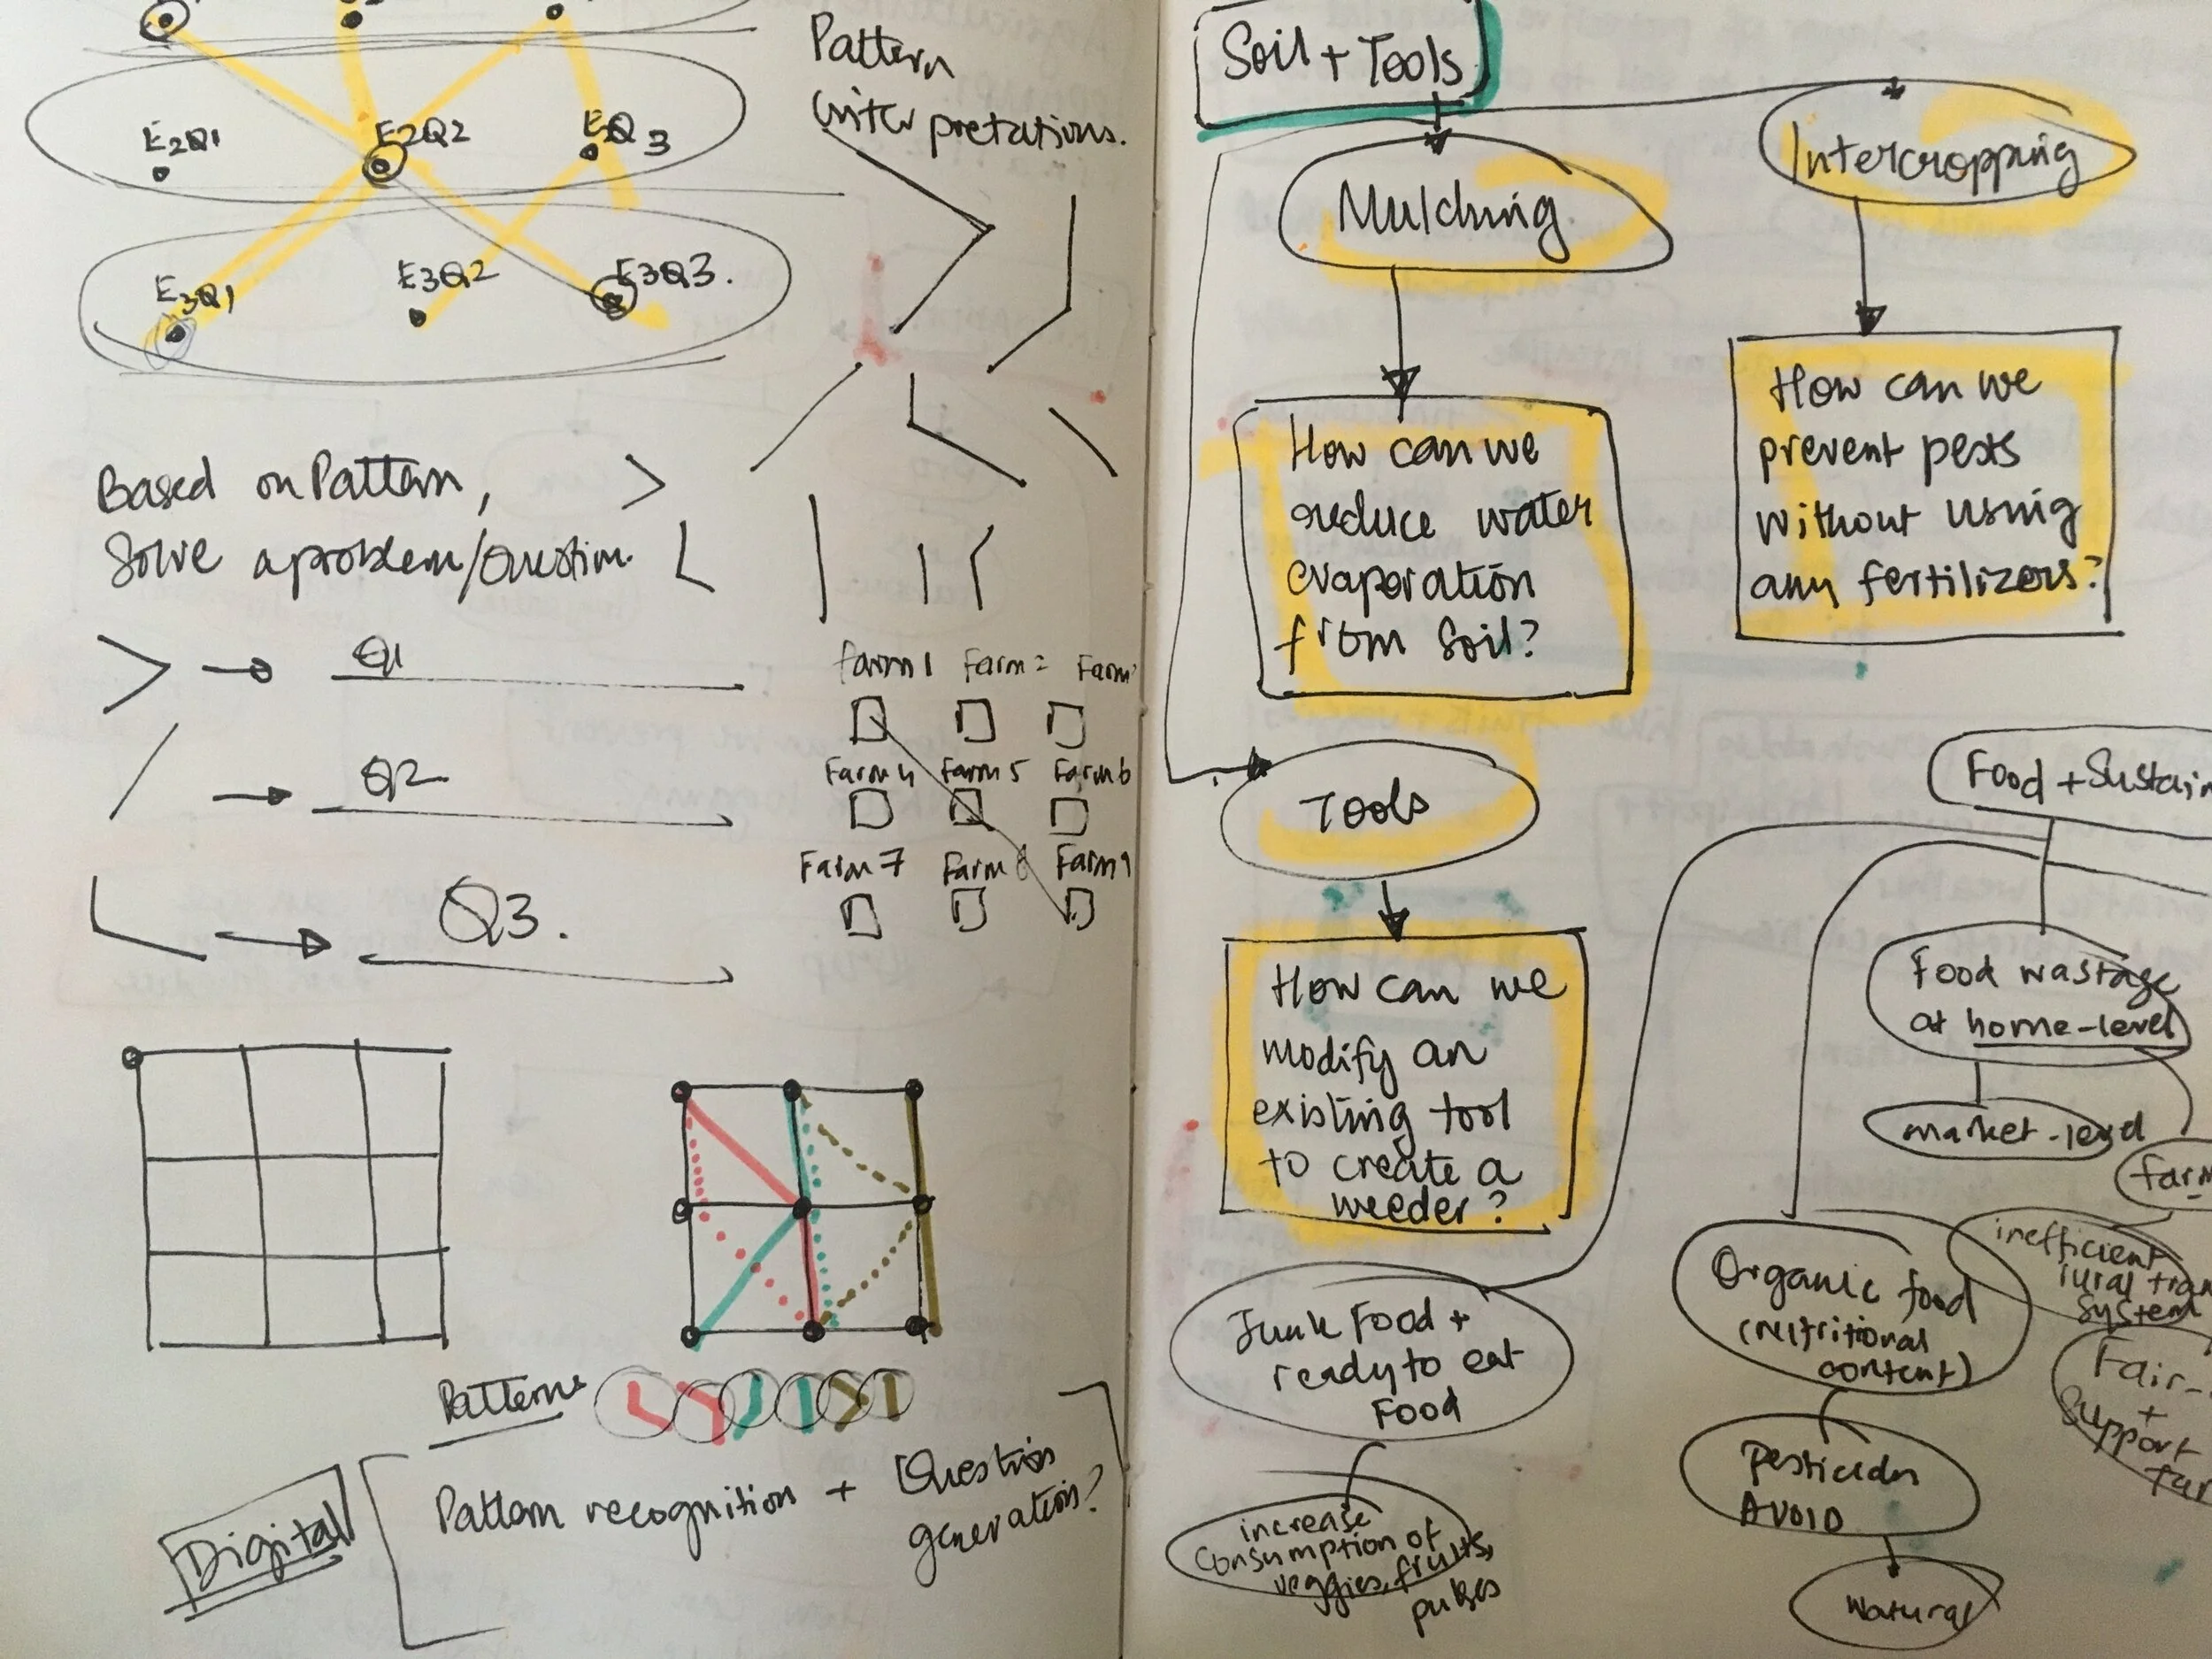 Pattern
interpretations.
E2Q1
E2Q2
Q3
E3Q1
E3Q2
E3Q3.
Based on Pattern,
Solve a problem/Question.
Q1
Q2
Q3.
farm 1 Farm 2 Farm
Farm 4 Farm 5 Farm 6
Farm 7 Farm 8 Farm 9
Patterns
Digital
Pattern recognition + Question
generation?
Soil + Tools
Mulching
Intercropping
How can we
reduce water
evaporation
from Soil?
How can we
prevent pests
without using
any fertilizers?
Tools
How can we
modify an
existing tool
to create a
weeder?
Food + Sustain
Food wastage
at home-level
market-level
farm
inefficient
rural tran
System
Fair-
+
Support
far
Organic food
(nutritional
content)
Pesticides
AVOID
Natural
Junk Food +
ready to eat
Food
increase
consumption of
veggies, fruits,
pulses